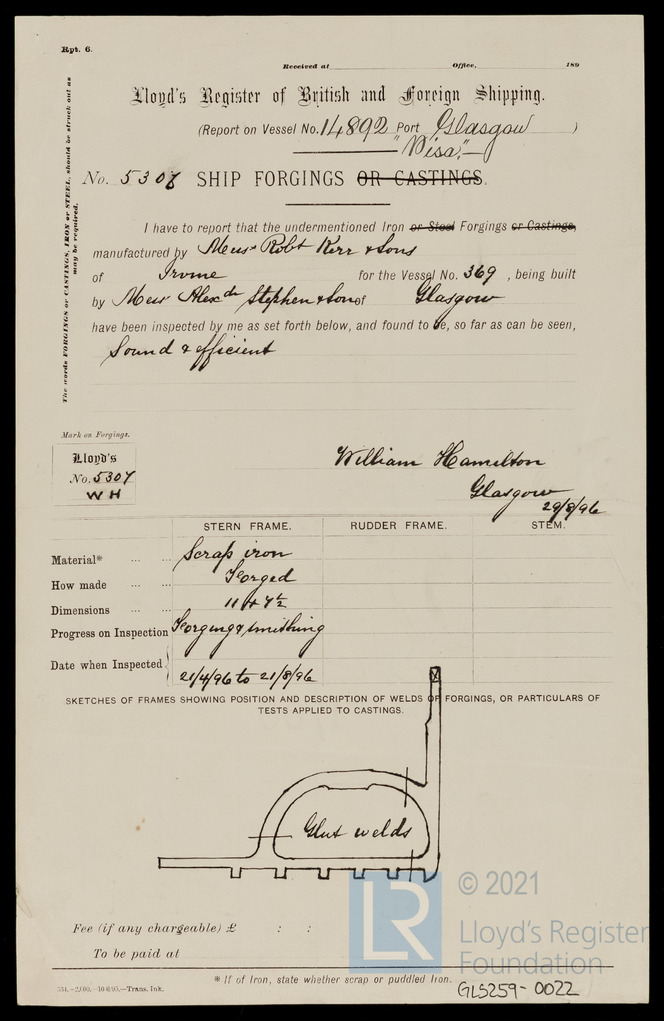 Rpt. 6.
Received at Office, 189
Lloyd's Register of British and Foreign Shipping.
(Report on Vessel No. 14892 Port Glasgow)
"Nisa"
No. 5307 SHIP FORGINGS OR CASTINGS.
The words FORGINGS or CASTINGS, IRON or STEEL, should be struck out as
may be required.
I have to report that the undermentioned Iron or Steel Forgings or Castings,
manufactured by Messrs Robt Kerr & Sons
of Irvine for the Vessel No. 369, being built
by Messrs Alexdr Stephen & Sons of Glasgow
have been inspected by me as set forth below, and found to be, so far as can be seen,
Sound & efficient
Mark on Forgings.
Lloyd's
No. 5307
W H
William Hamilton
Glasgow
29/8/96
STERN FRAME. RUDDER FRAME. STEM.
Material* ... ... Scrap iron
How made ... ... Forged
Dimensions ... ... 11 x 7½
Progress on Inspection Forging & smithing
Date when Inspected 21/4/96 to 21/8/96
SKETCHES OF FRAMES SHOWING POSITION AND DESCRIPTION OF WELDS OF FORGINGS, OR PARTICULARS OF
TESTS APPLIED TO CASTINGS.
Glut welds
Fee (if any chargeable) £ : :
To be paid at
* If of Iron, state whether scrap or puddled Iron.
Trans. Ink.
GLS259-0022
LR
© 2021
Lloyd's Register
Foundation